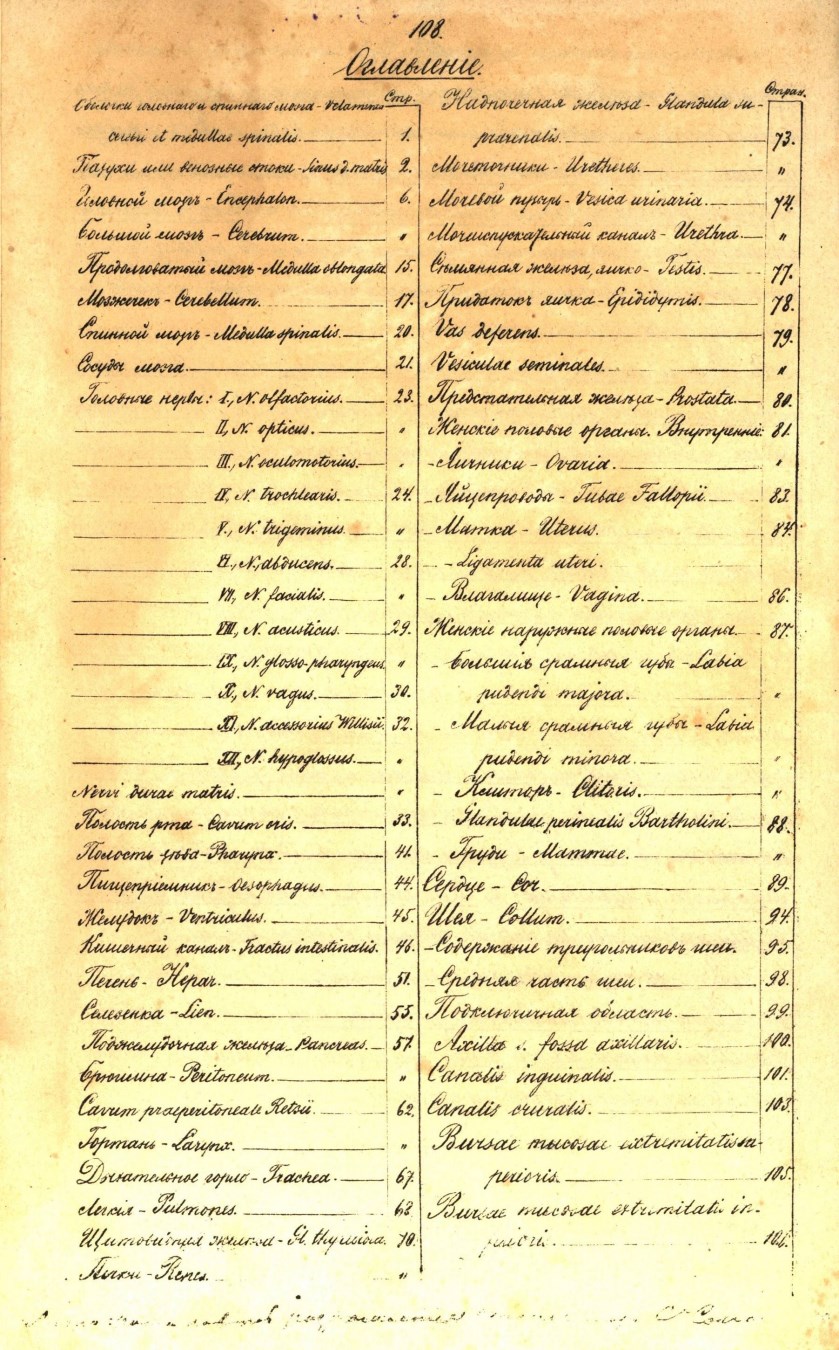 108.
Оглавленіе.
Стр.
Оболочки головнаго и спиннаго мозга - Velamenta
cerebri et medullae spinalis. 1.
Пазухи или венозные стоки - Sinus d. matris 2.
Головной мозгъ - Encephalon. 6.
Большой мозгъ - Cerebrum. "
Продолговатый мозгъ - Medulla oblongata 15.
Мозжечекъ - Cerebellum. 17.
Спинной мозгъ - Medulla spinalis. 20.
Сосуды мозга 21.
Головные нервы: I., N. olfactorius. 23.
II., N. opticus. "
III., N. oculomotorius. "
IV., N. trochlearis. 24.
V., N. trigeminus. "
VI., N. abducens. 28.
VII., N. facialis. "
VIII., N. acusticus. 29.
IX., N. glosso-pharyngeus. "
X., N. vagus. 30.
XI., N. accessorius Willisii. 32.
XII., N. hypoglossus. "
Nervi durae matris. "
Полость рта - Cavum oris. 33.
Полость зѣва - Pharynx. 41.
Пищепріемникъ - Oesophagus. 44.
Желудокъ - Ventriculus. 45.
Кишечный каналъ - Tractus intestinalis. 46.
Печень - Hepar. 51.
Селезенка - Lien. 55.
Поджелудочная железа - Pancreas. 57.
Брюшина - Peritoneum. "
Cavum praeperitoneale Retzii. 62.
Гортань - Larynx. "
Дыхательное горло - Trachea. 67.
Легкія - Pulmones. 68.
Щитовидная железа - Gl. thyreoidea. 70.
Почки - Renes. "
Стран.
Надпочечная железа - Glandula su-
prarenalis. 73.
Мочеточники - Uretheres. "
Мочевой пузырь - Vesica urinaria. 74.
Мочеиспускательный каналъ - Urethra. "
Сѣмянная железа, яичко - Testis. 77.
Придатокъ яичка - Epididymis. 78.
Vas deferens. 79.
Vesiculae seminales. "
Предстательная железа - Prostata. 80.
Женскіе половые органы. Внутренніе: 81.
- Яичники - Ovaria. "
- Яйцепроводы - Tubae Fallopii. 83.
- Матка - Uterus. 84.
- Ligamenta uteri.
- Влагалище - Vagina. 86.
Женскіе наружные половые органы. 87.
- Большія срамныя губы - Labia
pudendi majora. "
- Малыя срамныя губы - Labia
pudendi minora. "
- Клиторъ - Clitoris. "
- Glandulae perinealis Bartholini. 88.
- Груди - Mammae. "
Сердце - Cor. 89.
Шея - Collum. 94.
- Содержаніе треугольниковъ шеи. 95.
- Средняя часть шеи. 98.
Подключичная область. 99.
Axilla s. fossa axillaris. 100.
Canalis inguinalis. 101.
Canalis cruralis. 103.
Bursae mucosae extremitatis su-
perioris. 105.
Bursae mucosae extremitati in-
feriori. 106.